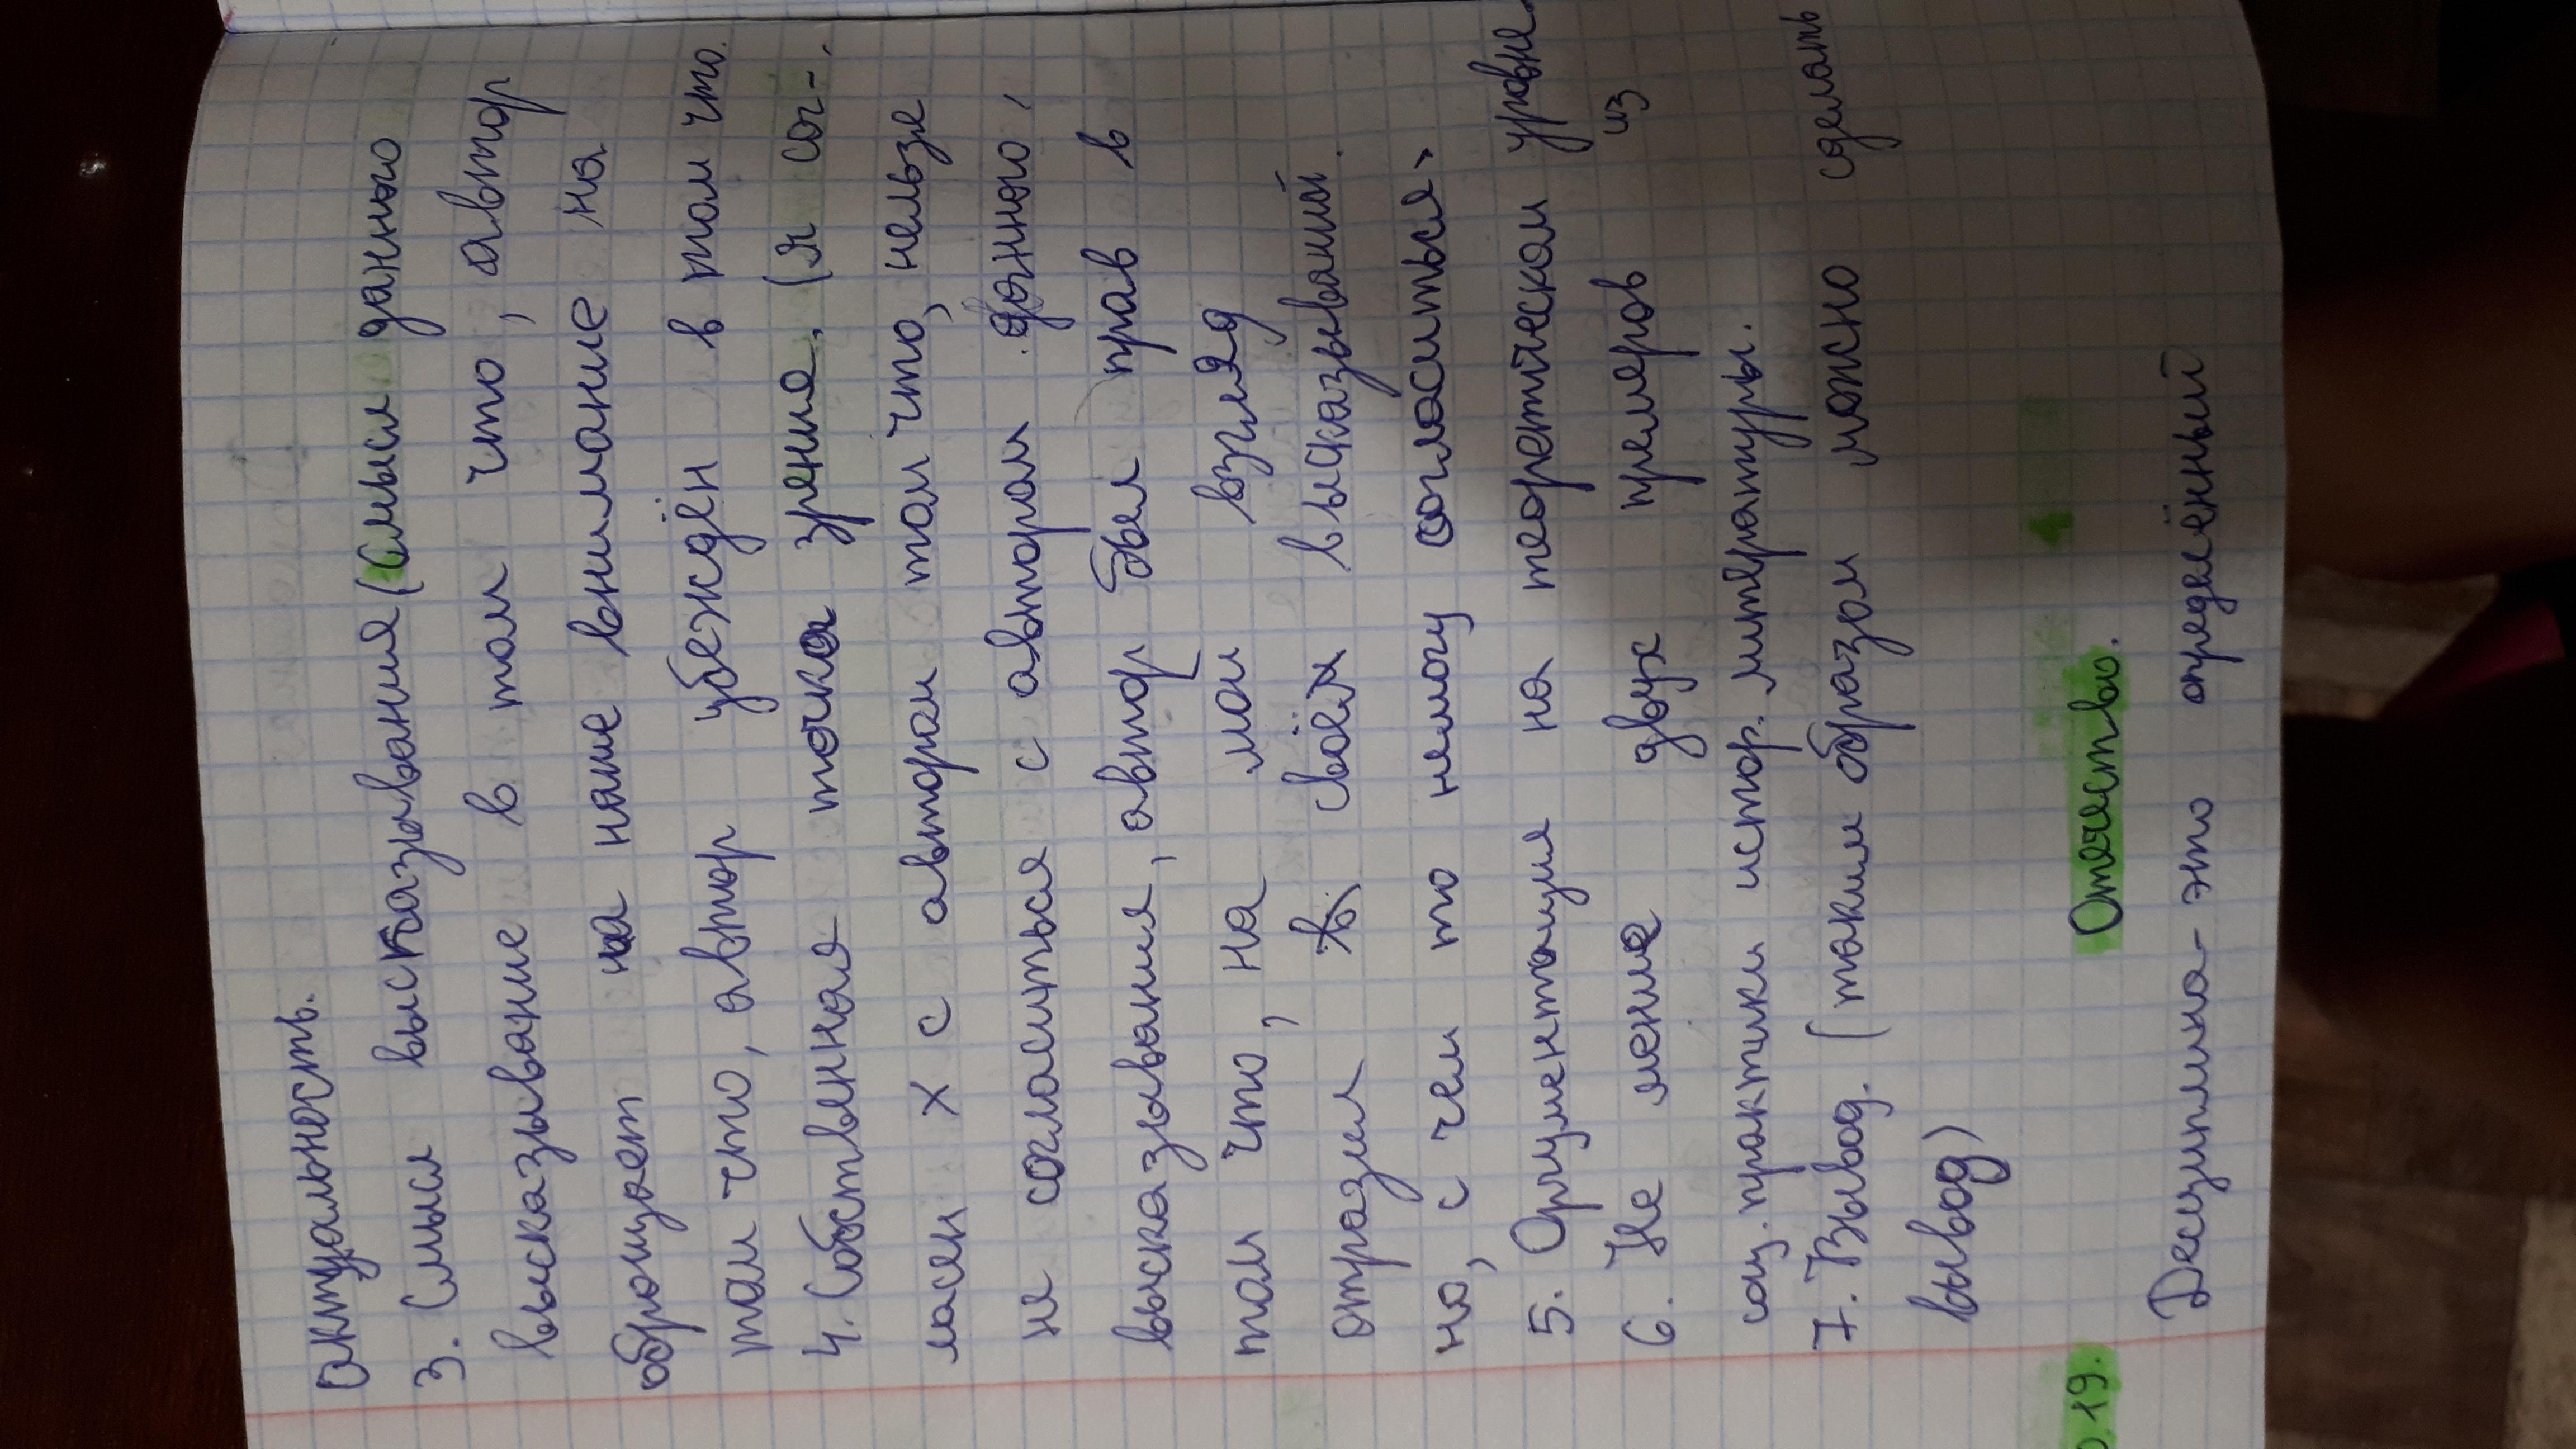 актуальность.
3. Смысл высказывания (Смысл данного
высказывание в том что, автор
оброщает на наше внимание на
том что, автор убеждён в том что.
4. Собственная точка зрения. (я сог-
ласен х с автором том что, нельзе
не согласиться с автором данного,
высказывания, автор был прав в
том что, на мои взгляд
отразил в своём высказываний.
но, с чем то немогу согласиться»
5. Оргументация на теоретическом уровне
6. Не мение двух премеров из
соц. практики истор. литературы.
7. Вывод. (таким образом можно сделать
вывод)
19. Отечество.
Десцуплина - это определённый